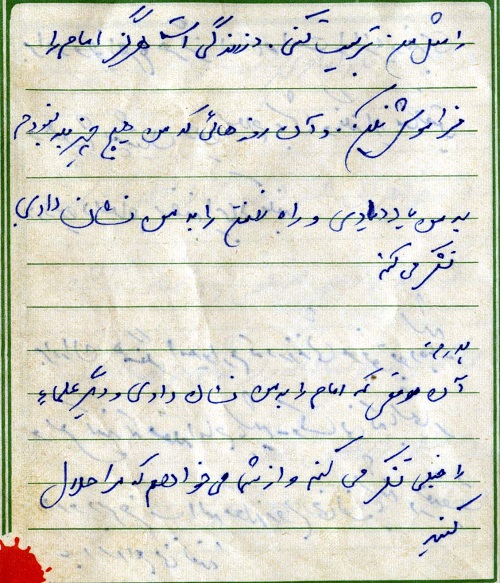 را مثل من تربیت کنی. در زندگی ات هرگز امام را
فراموش نکن. و آن روزهائی که من هیچ چیز بلد نبودم
به من یاد دادی و راه را به من نشان دادی
تشکر می کنم
پدرم
آن موقعی که امام را به من نشان دادی و دیگر علماء
را خیلی تشکر می کنم و از شما می خواهم که مرا حلال
کنید